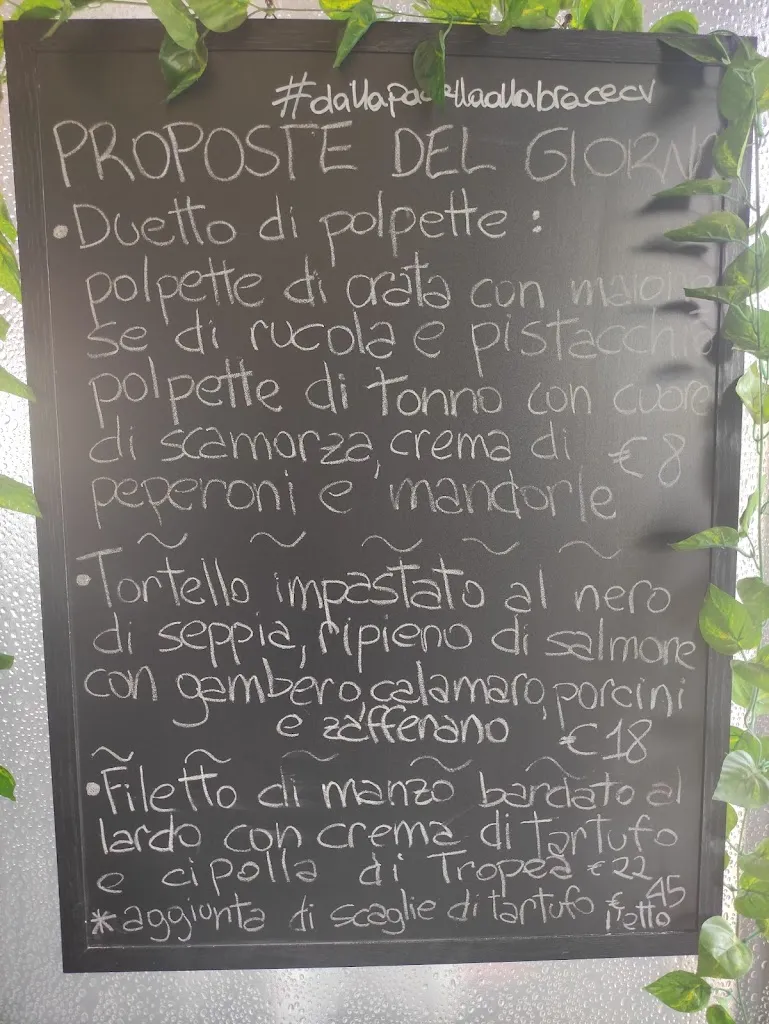 #dallapadellaallabracecv
PROPOSTE DEL GIORNO
• Duetto di polpette :
polpette di orata con maione
se di rucola e pistacchio
polpette di tonno con cuore
di scamorza, crema di €8
peperoni e mandorle
~ ~ ~ ~ ~
• Tortello impastato al nero
di seppia, ripieno di salmone
con gambero, calamaro, porcini
e zafferano €18
~ ~ ~ ~ ~
• Filetto di manzo bardato al
lardo con crema di tartufo
e cipolla di Tropea €22
* aggiunta di scaglie di tartufo € 45
l'etto